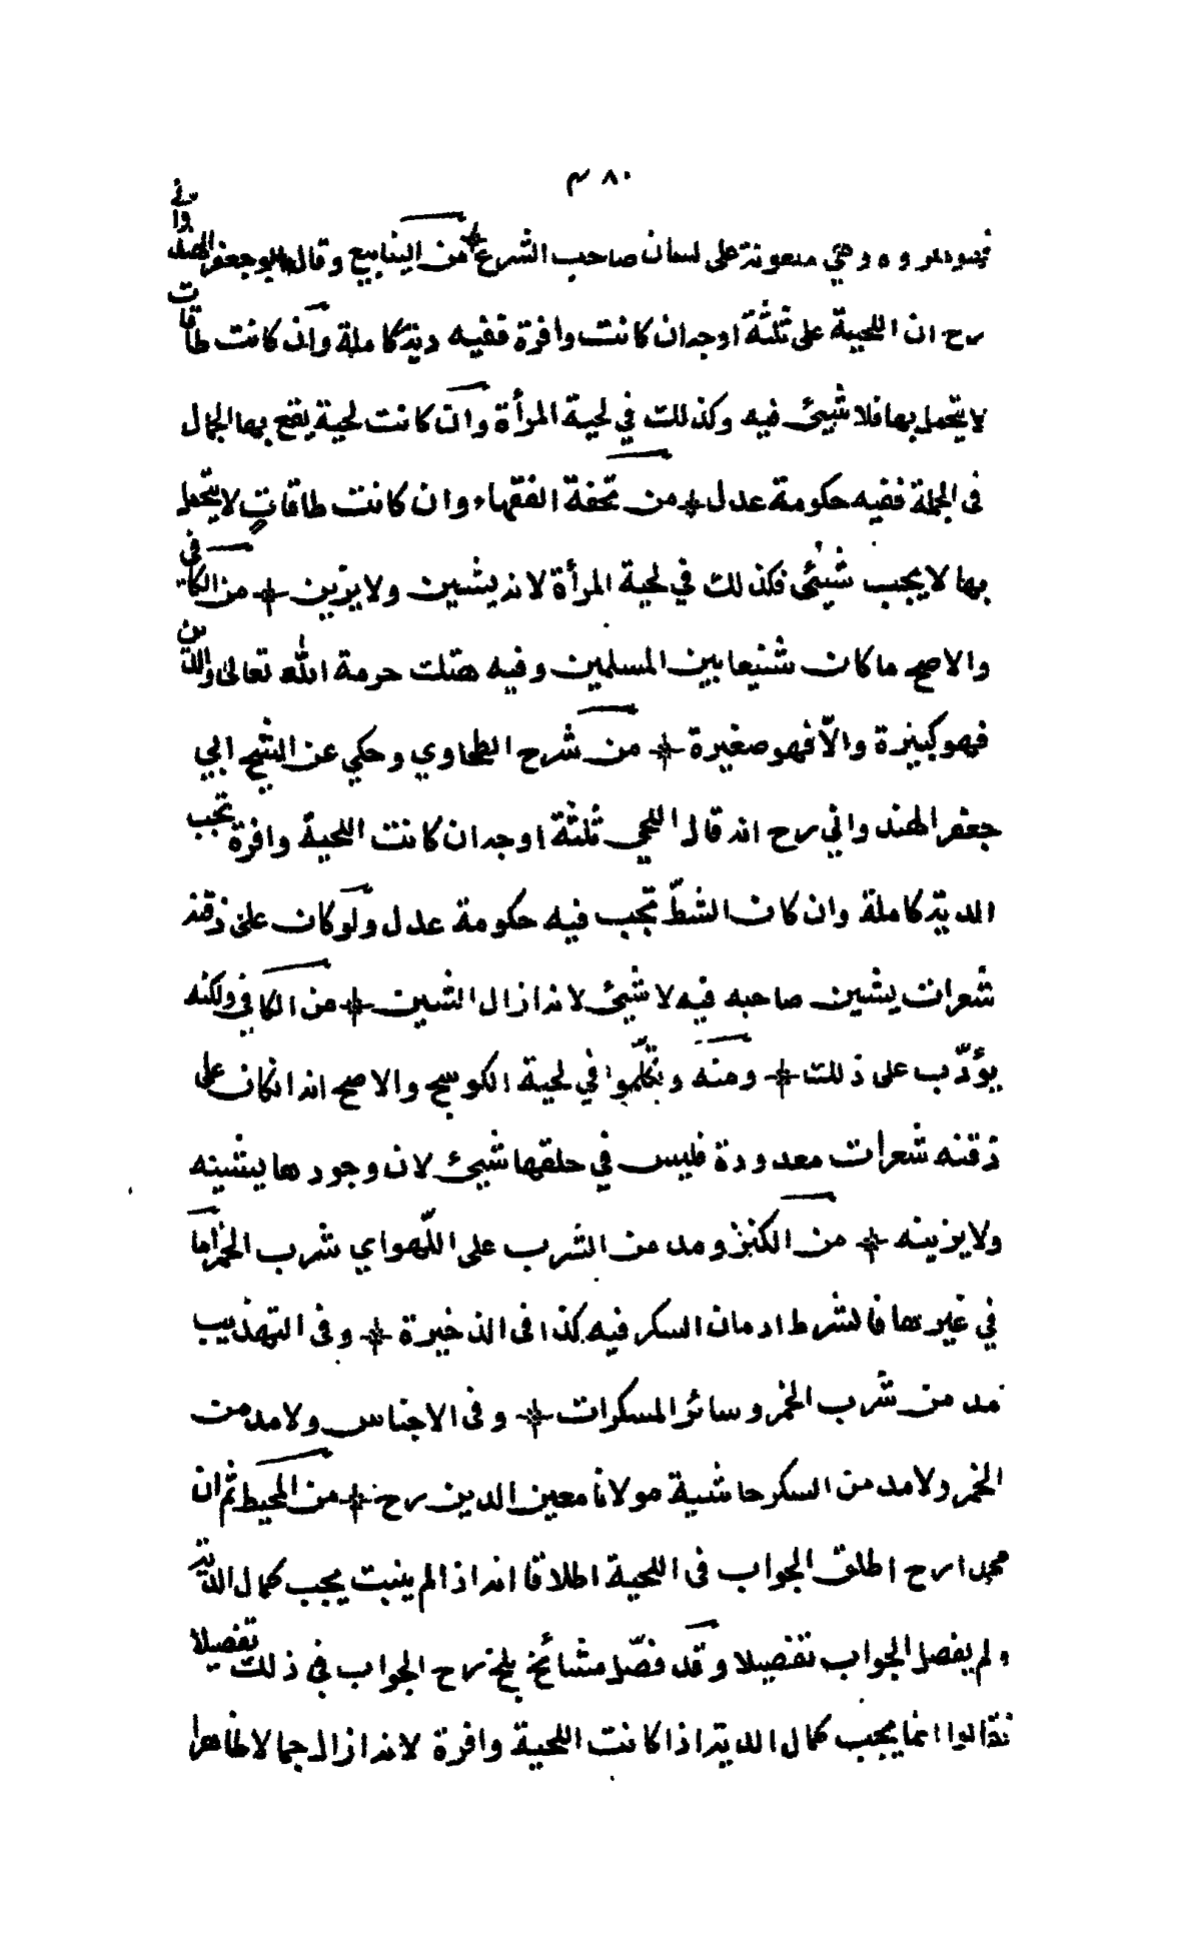 ٤٨٠
ملعونة على لسان صاحب الشرع * من الينابيع وقال ابو جعفر الهندواني
رح ان اللحية على ثلثة اوجه ان كانت وافرة ففيه دية كاملة وان كانت طاقات
لا يتجمل بها فلا شيئ فيه وكذلك في لحية المرأة وان كانت لحية يقع بها الجمال
فى الجملة ففيه حكومة عدل * من تحفة الفقهاء وان كانت طاقات لا يتجمل
بها لا يجب شيئى فكذلك في لحية المرأة لانه يشين ولا يزين * من الكافى
والاصح ما كان شنيعا بين المسلمين وفيه هتك حرمة الله تعالى والدين
فهو كبيرة والّا فهو صغيرة * من شرح الطحاوي وحكي عن الشيخ ابي
جعفر الهندواني رح انه قال اللحي ثلثة اوجه ان كانت اللحية وافرة تجب
الدية كاملة وان كان الشطّ تجب فيه حكومة عدل ولو كان على ذقنه
شعرات يشين صاحبه فيه لا شيئ لانه ازال الشين * من الكافي ولكنه
يؤدّب على ذلك * ومنه وتكلّموا في لحية الكوسج والاصح انه انكان على
ذقنه شعرات معدودة فليس في حلقها شيئ لان وجودها يشينه
ولا يزينه * من الكنز ومدمن الشرب على اللّهو اي شرب الخمر اما
في غيرها فالشرط ادمان السكر فيه كذا فى الذخيرة * وفى التهذيب
مدمن شرب الخمر وسائر المسكرات * وفى الاجناس ولا مدمن
الخمر ولا مدمن السكر حاشية مولانا معين الدين رح * من المحيط ثم ان
محمدا رح اطلق الجواب فى اللحية اطلاقا انه اذا لم ينبت يجب كمال الدية
ولم يفصل الجواب تفصيلا وقد فصّل مشائخ بلخ رح الجواب في ذلك تفصيلا
فقالوا انما يجب كمال الدية اذا كانت اللحية وافرة لانه ازال جمالا ظاهرا